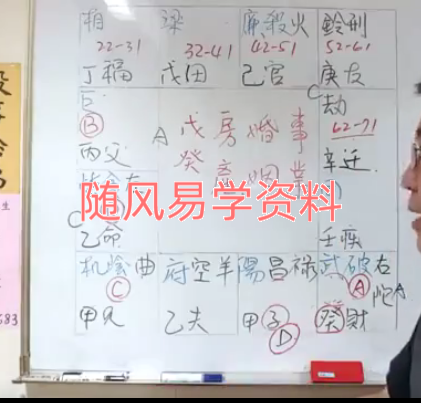 相 梁 廉殺火 鈴刑
22-31 32-41 42-51 52-61
丁福 戊田 己官 庚友
巨 劫
B A 戊 房 婚 事 C 62-71
丙父 癸 產 姻 業 辛迁
随风易学资料
C
乙命 壬疾
机陰曲 府空羊 陽昌祿 武破右
C A 陀A
甲兄 乙夫 甲子 癸財
D
683